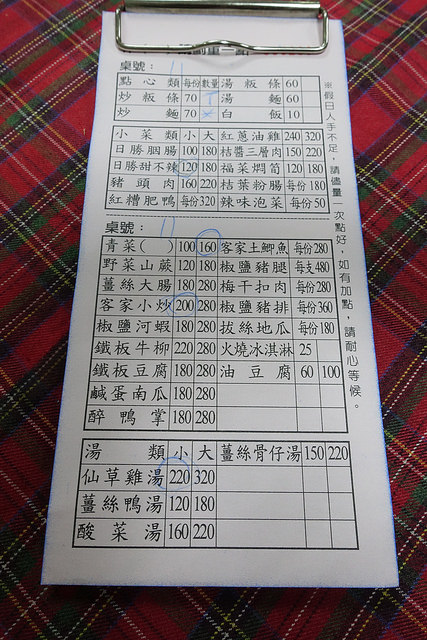 桌號：
點心類 每份 數量 湯粄條 60
炒粄條 70 湯麵 60
炒麵 70 白飯 10
小菜類 小 大 紅蔥油雞 240 320
日勝胭腸 100 180 桔醬三層肉 150 220
日勝甜不辣 120 180 福菜燜筍 120 180
豬頭肉 160 220 桔葉粉腸 每份 180
紅糟肥鴨 每份 320 辣味泡菜 每份 50
桌號：
青菜( ) 100 160 客家土鯽魚 每份280
野菜山蕨 120 180 椒鹽豬腿 每支480
薑絲大腸 180 280 梅干扣肉 每份280
客家小炒 200 280 椒鹽豬排 每份360
椒鹽河蝦 180 280 拔絲地瓜 每份180
鐵板牛柳 220 280 火燒冰淇淋 25
鐵板豆腐 180 280 油豆腐 60 100
鹹蛋南瓜 180 280
醉鴨掌 180 280
湯類 小 大 薑絲骨仔湯 150 220
仙草雞湯 220 320
薑絲鴨湯 120 180
酸菜湯 160 220
※假日人手不足，請儘量一次點好，如有加點，請耐心等候。